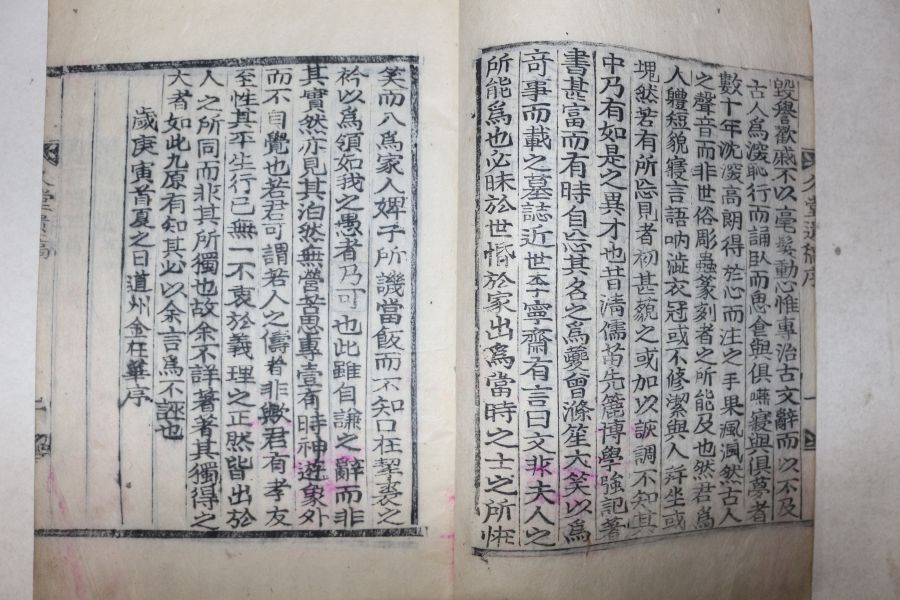 毀譽歡戚不以一毫髮動心惟專治古文辭而以不及
古人爲深恥行而誦臥而思食與俱嚥寢與俱夢者
數十年沈深高朗得於心而注之手果渢渢然古人
之聲音而非世俗彫蟲篆刻者之所能及也然君爲
人軆短貌寢言語吶澁衣冠或不修潔與人並坐或
塊然若有所忘見者初甚藐之或加以詼調不知其
中乃有如是之異才也昔淸儒苗先麓博學強記著
書甚富而有時自忘其名之爲夔曾滌笙大笑以爲
奇事而載之墓誌近世李寧齋有言曰文非夫人之
所能爲也必昧於世惛於家出爲當時之士之所恠
笑而入爲家人婢子所譏當飯而不知口在挈裘之
衿以爲領如我之愚者乃可也此雖自謙之辭而非
其實然亦見其泊然無營甚愚專壹有時神遊象外
而不自覺也若君可謂若人之儔者非歟君有孝友
至性其平生行己無一不衷於義理之正然皆出於
人之所同而非其所獨也故余不詳著著其獨得之
大者如此九原有知其必以余言爲不誣也
歲庚寅首夏之日道州金在華序